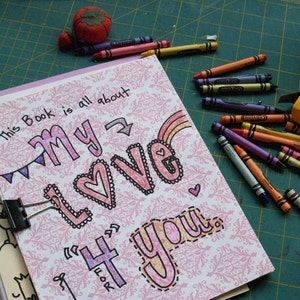 This Book is all about
My
LOVE
"4" You
FER